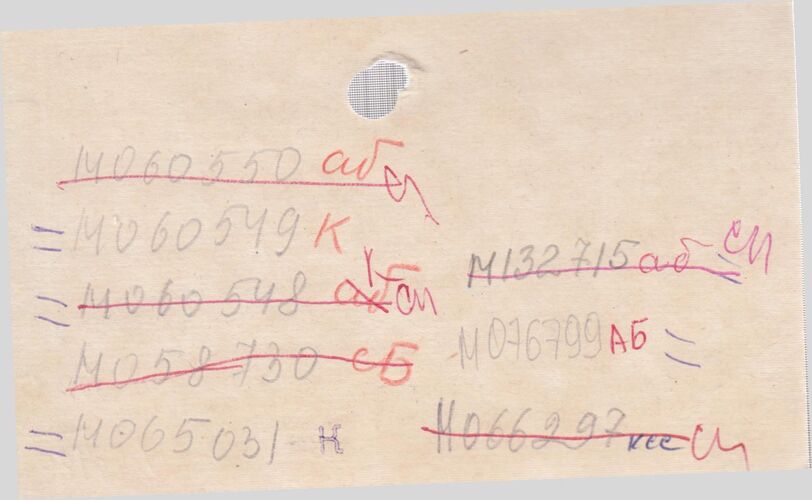 М060550 аб сп
= М060549 К
= М060548 аб К сп
М058730 сб
= М065031 К
М132715 аб сп =
М076799 АБ =
М066297 ксс сп